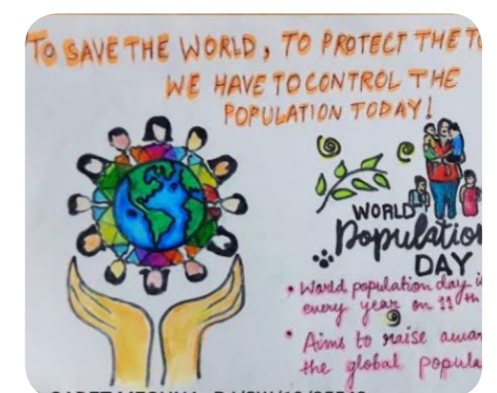 TO SAVE THE WORLD, TO PROTECT THE
WE HAVE TO CONTROL THE
POPULATION TODAY!
WORLD
Population
DAY
• World population day
every year on 11th
• Aims to raise
the global